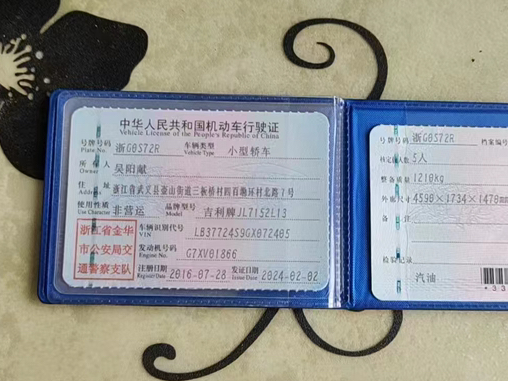 中华人民共和国机动车行驶证
Vehicle License of the People's Republic of China
号牌号码 浙G0572R 车辆类型 小型轿车
Plate No. Vehicle Type
所有人 吴阳献
Owner
住址 浙江省武义县壶山街道三板桥村四百勘环村北路7号
Address
使用性质 非营运 品牌型号 吉利牌JL7152L13
Use Character Model
浙江省金华
市公安局交
通警察支队
车辆识别代号 LB37724S9GX072405
VIN
发动机号码 G7XV01866
Engine No.
注册日期 2016-07-28 发证日期 2024-02-02
Register Date Issue Date
号牌号码 浙G0572R 档案编号
核定载人数 5人
整备质量 1210kg
外廓尺寸 4590×1734×1470mm
备注
检验记录
汽油
*33